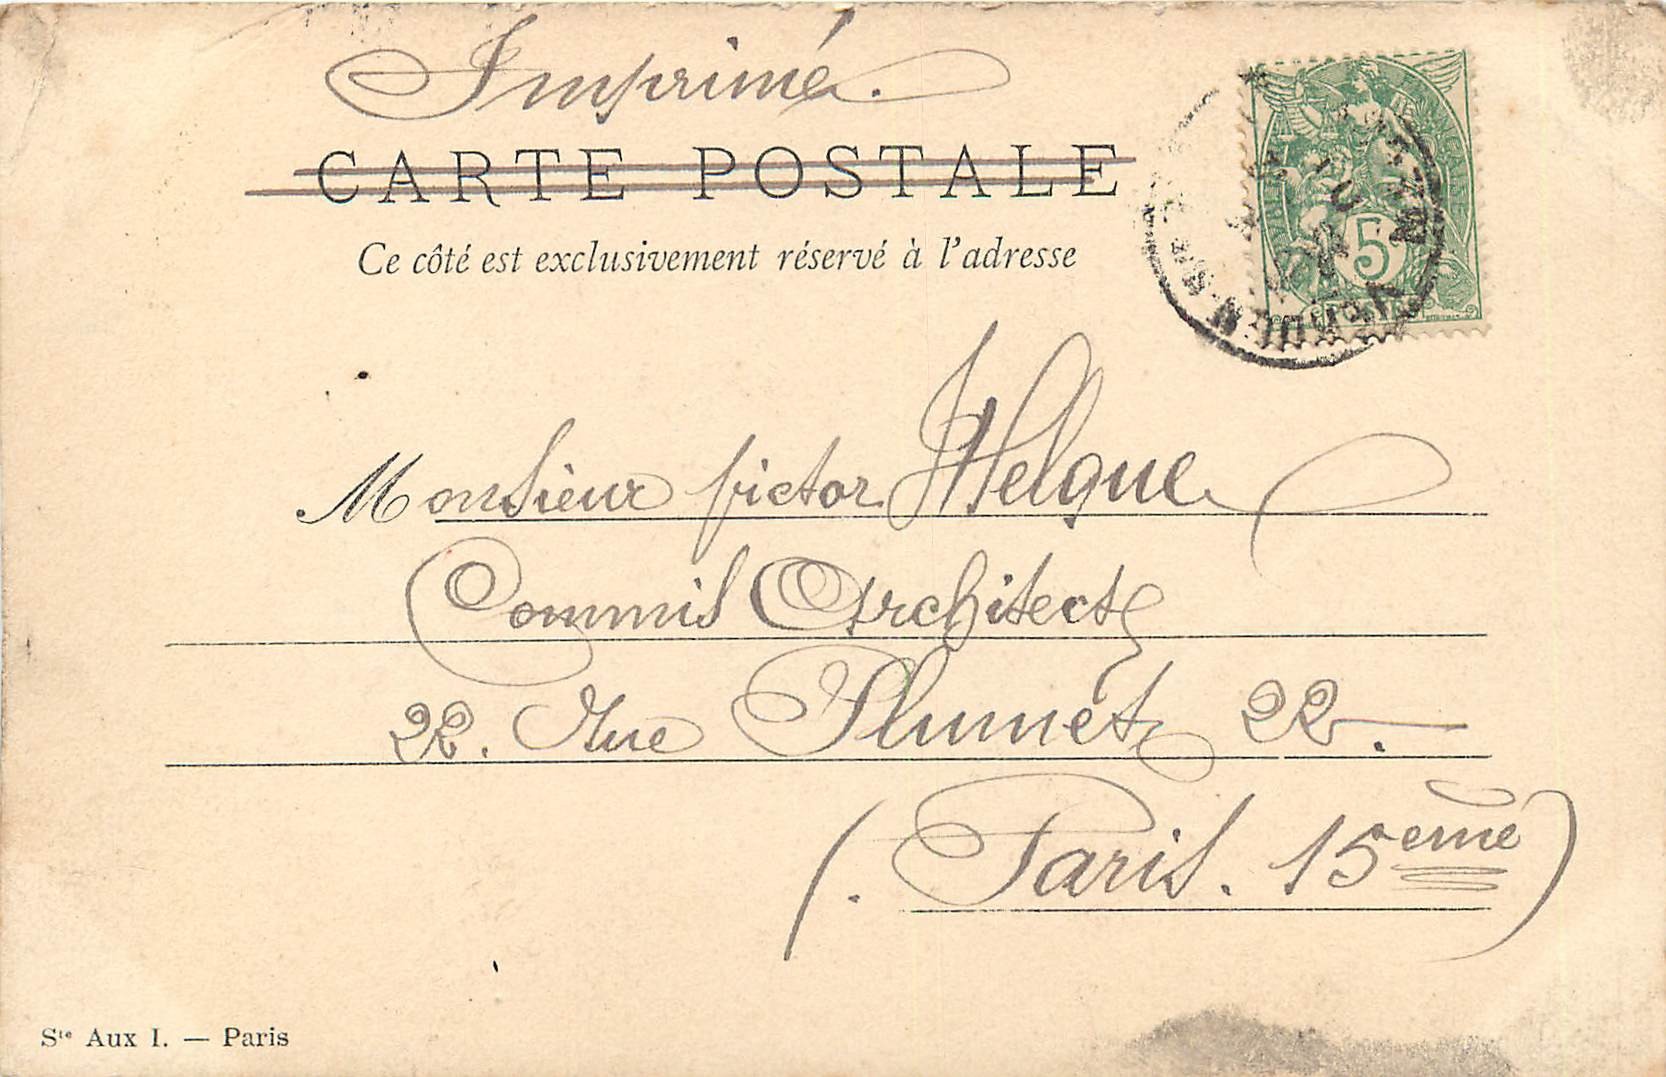 Imprimé.
CARTE POSTALE
Ce côté est exclusivement réservé à l'adresse
5
VERDUN
Monsieur Victor Helque
Commis Architecte
22. Rue Plumet 22.
(. Paris. 15eme)
Ste Aux I. — Paris